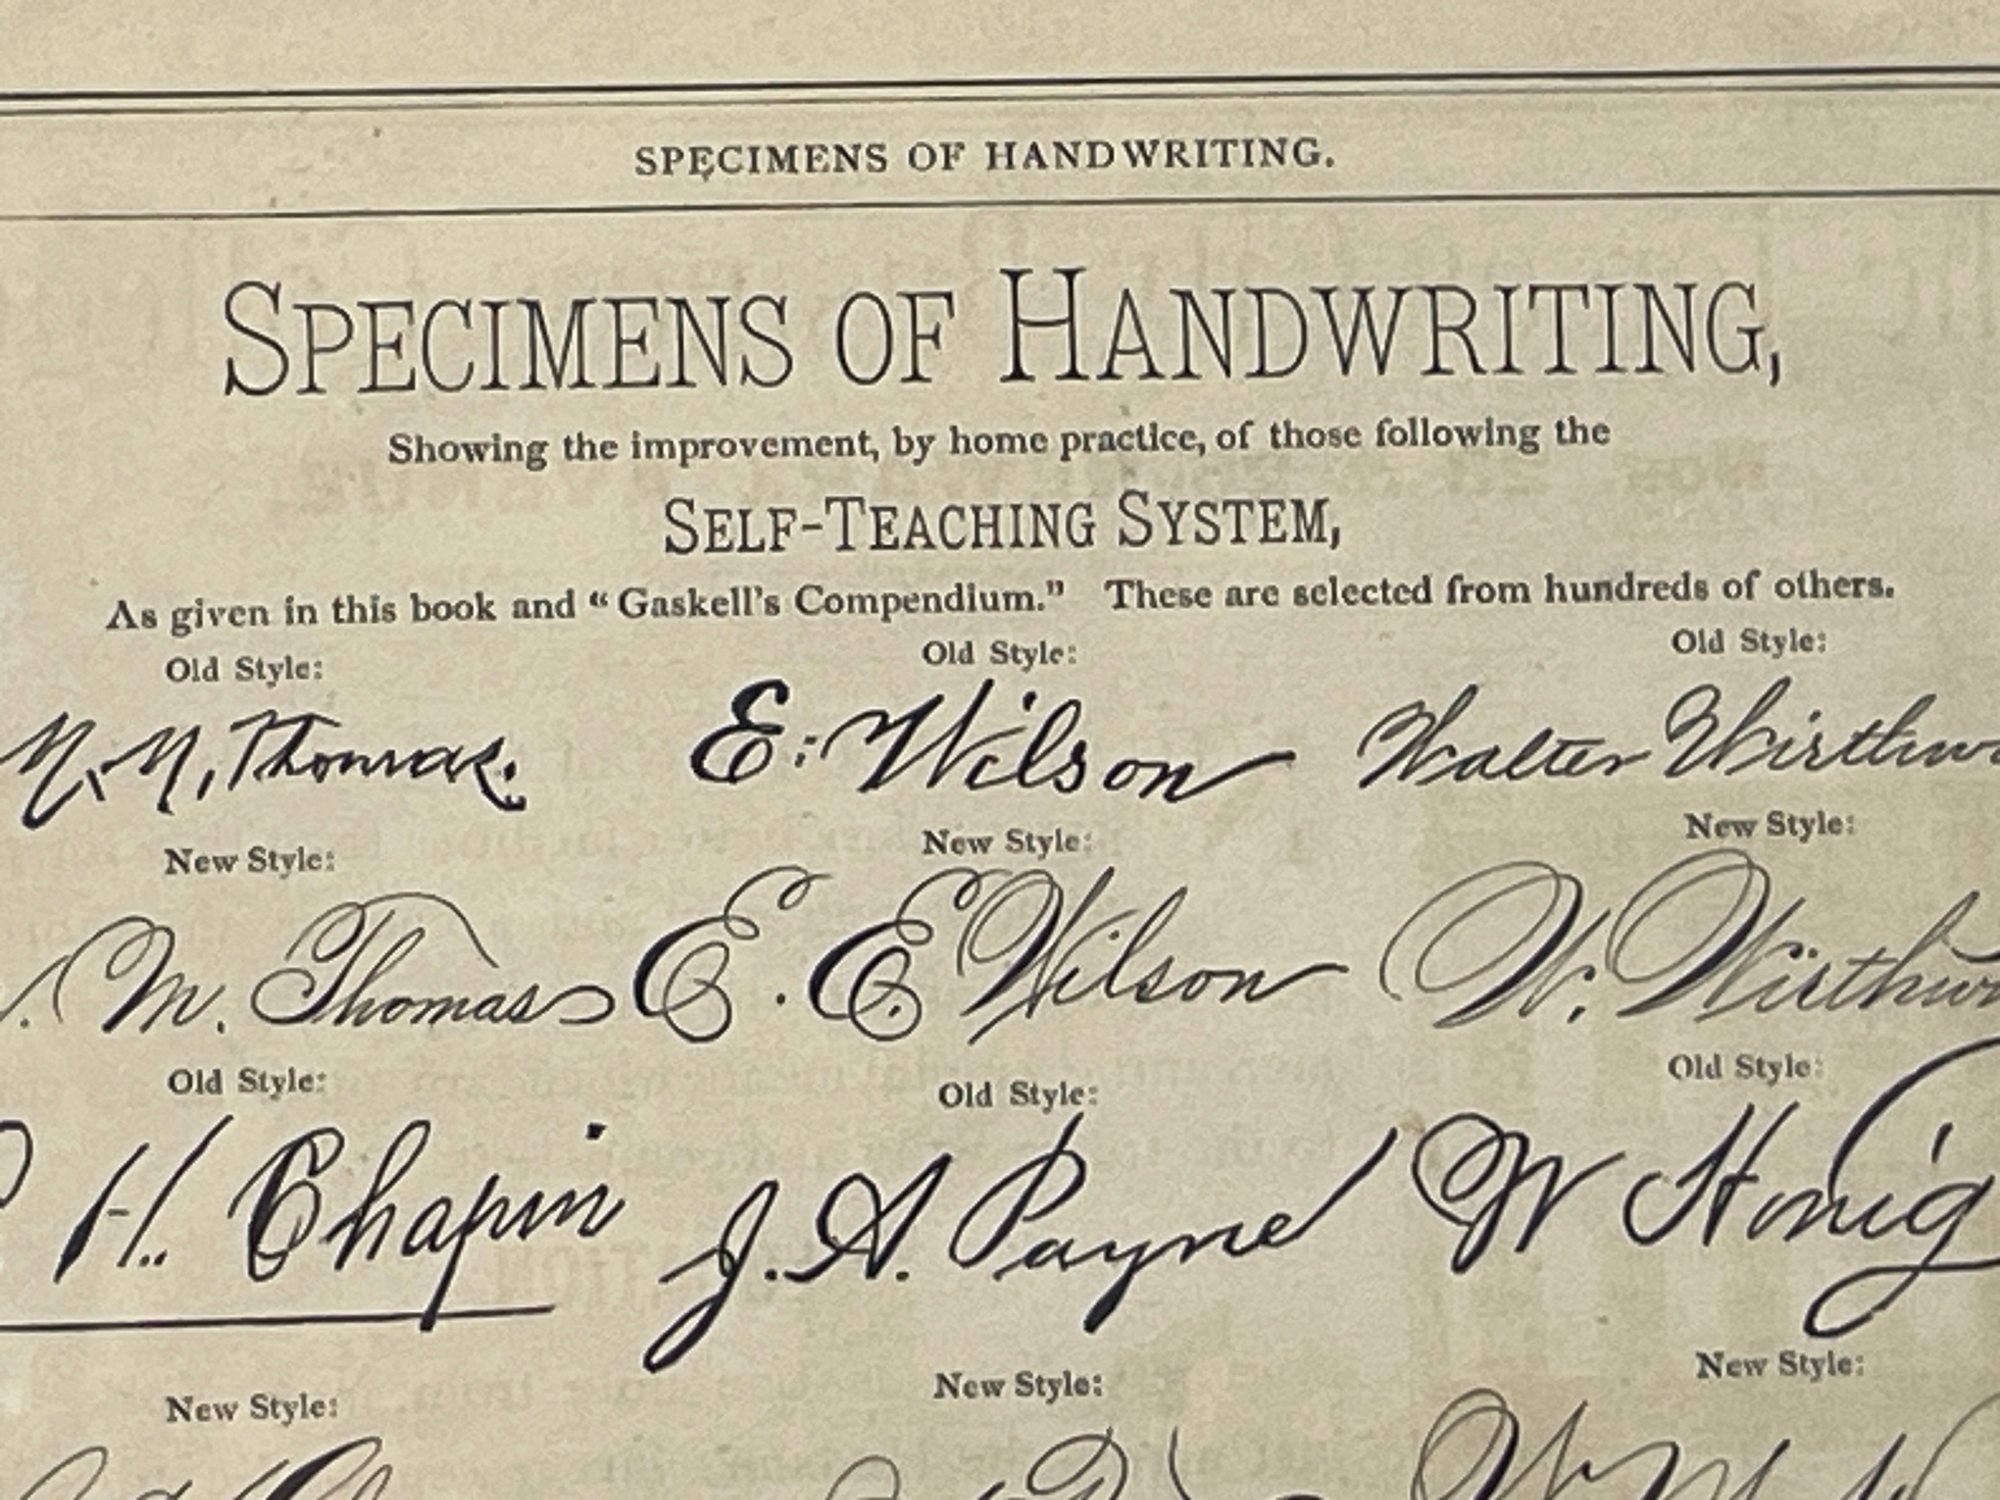 SPECIMENS OF HANDWRITING.
SPECIMENS OF HANDWRITING,
Showing the improvement, by home practice, of those following the
SELF-TEACHING SYSTEM,
As given in this book and “Gaskell's Compendium.” These are selected from hundreds of others.
Old Style: Old Style: Old Style:
Thomas. E. Wilson Walter
New Style: New Style: New Style:
M. Thomas E. E. Wilson W.
Old Style: Old Style: Old Style:
H. Chapin J. A. Payne W Honig
New Style: New Style: New Style: